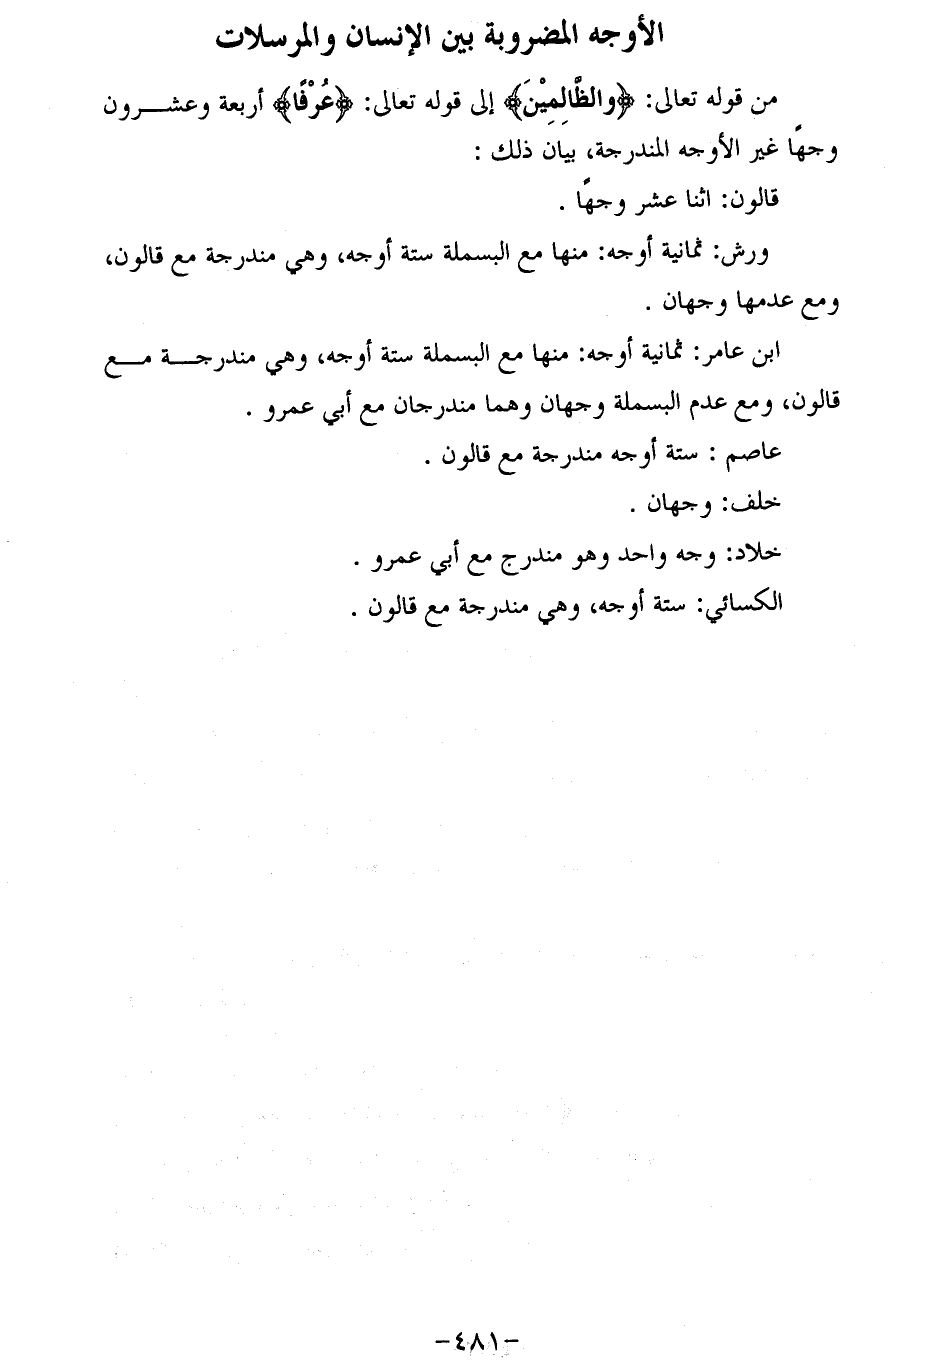 الأوجه المضروبة بين الإنسان والمرسلات
من قوله تعالى: ﴿والظَّالِمِيْنَ﴾ إلى قوله تعالى: ﴿عُرْفًا﴾ أربعة وعشـــرون
وجهًا غير الأوجه المندرجة، بيان ذلك :
قالون: اثنا عشر وجهًا .
ورش: ثمانية أوجه: منها مع البسملة ستة أوجه، وهي مندرجة مع قالون،
ومع عدمها وجهان .
ابن عامر: ثمانية أوجه: منها مع البسملة ستة أوجه، وهي مندرجـــة مـــع
قالون، ومع عدم البسملة وجهان وهما مندرجان مع أبي عمرو .
عاصم : ستة أوجه مندرجة مع قالون .
خلف: وجهان .
خلاد: وجه واحد وهو مندرج مع أبي عمرو .
الكسائي: ستة أوجه، وهي مندرجة مع قالون .
-٤٨١-